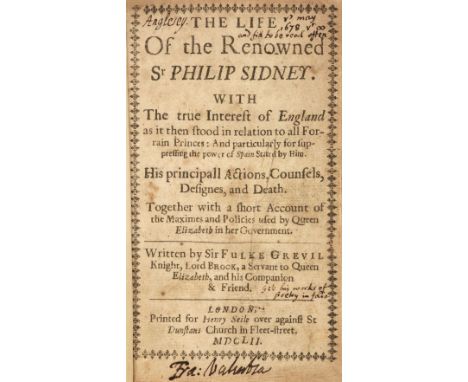 Anglesey. THE LIFE may
1678
Of the Renowned and fit to be read often
Sr PHILIP SIDNEY.
WITH
The true Interest of England
as it then stood in relation to all For-
rain Princes: And particularly for sup-
pressing the power of Spain Stated by Him.
His principall Actions, Counsels,
Designes, and Death.
Together with a short Account of
the Maximes and Policies used by Queen
Elizabeth in her Government.
Written by Sir FULKE GREVIL
Knight, Lord BROOK, a Servant to Queen
Elizabeth, and his Companion
& Friend. his works of
poetry in
LONDON,
Printed for Henry Seile over against St
Dunstans Church in Fleet-street.
MDCLII.
Fra: Valentia